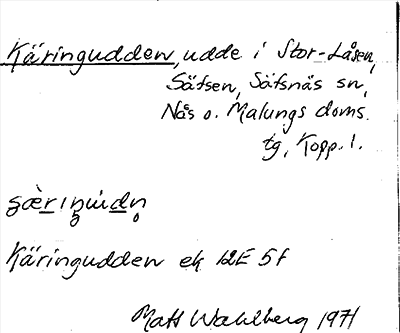 Käringudden, udde i Stor-Låsen,
Säfsen, Säfsnäs sn,
Nås o. Malungs doms.
tg, Kopp. l.
Käringudden ek 12E 5f
Matt Wahlberg 1971